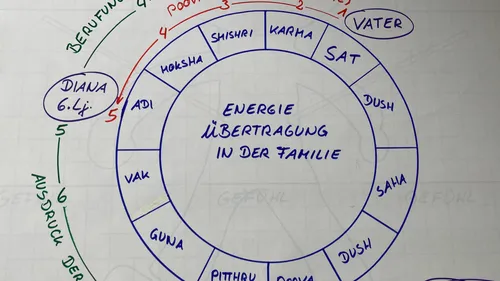 BERUFUNG
4
3
2
1
VATER
4
SHISHRI
KARMA
MOKSHA
SAT
DIANA
6. Lj.
5
ADI
DUSH
ENERGIE
ÜBERTRAGUNG
IN DER FAMILIE
5
VAK
SAHA
6
AUSDRUCK DER
GUNA
DUSH
PITTHRU
GEFÜHL